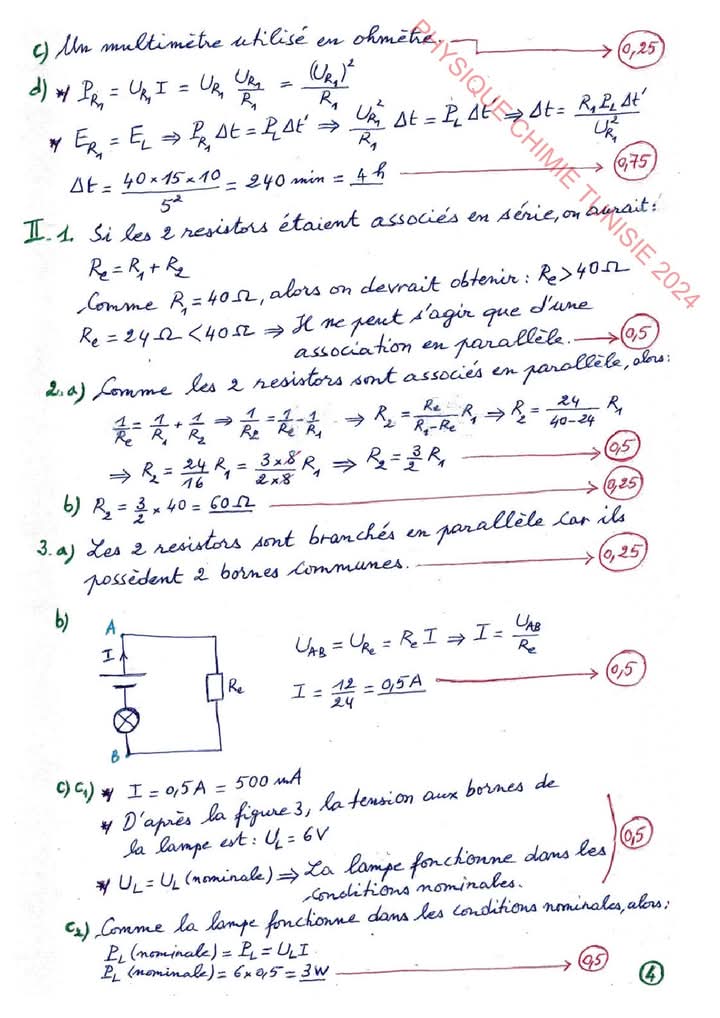 c) Un multimètre utilisé en ohmètre. 0,25
d) * P_R₁ = U_R₁ I = U_R₁ U_R₁/R₁ = (U_R₁)²/R₁
* E_R₁ = E_L ⇒ P_R₁ Δt = P_L Δt' ⇒ U_R₁²/R₁ Δt = P_L Δt' ⇒ Δt = R₁ P_L Δt'/U_R₁²
Δt = 40 × 15 × 10/5² = 240 min = 4 h 0,75
PHYSIQUE CHIMIE TUNISIE 2024
II. 1. Si les 2 resistors étaient associés en série, on aurait :
Re = R₁ + R₂
Comme R₁ = 40 Ω, alors on devrait obtenir : Re > 40 Ω
Re = 24 Ω < 40 Ω ⇒ Il ne peut s'agir que d'une
association en parallèle. 0,5
2. a) Comme les 2 resistors sont associés en parallèle, alors :
1/Re = 1/R₁ + 1/R₂ ⇒ 1/R₂ = 1/Re - 1/R₁ ⇒ R₂ = Re/(R₁-Re) R₁ ⇒ R₂ = 24/(40-24) R₁
⇒ R₂ = 24/16 R₁ = 3×8/2×8 R₁ ⇒ R₂ = 3/2 R₁ 0,5
b) R₂ = 3/2 × 40 = 60 Ω 0,25
3. a) Les 2 resistors sont branchés en parallèle car ils
possèdent 2 bornes communes. 0,25
b)
A
I
Re
B
U_AB = U_Re = Re I ⇒ I = U_AB/Re
I = 12/24 = 0,5 A 0,5
c) c₁) * I = 0,5 A = 500 mA
* D'après la figure 3, la tension aux bornes de
la lampe est : U_L = 6V
* U_L = U_L (nominale) ⇒ La lampe fonctionne dans les
conditions nominales. 0,5
c₂) Comme la lampe fonctionne dans les conditions nominales, alors :
P_L (nominale) = P_L = U_L I
P_L (nominale) = 6 × 0,5 = 3 W 0,5
4